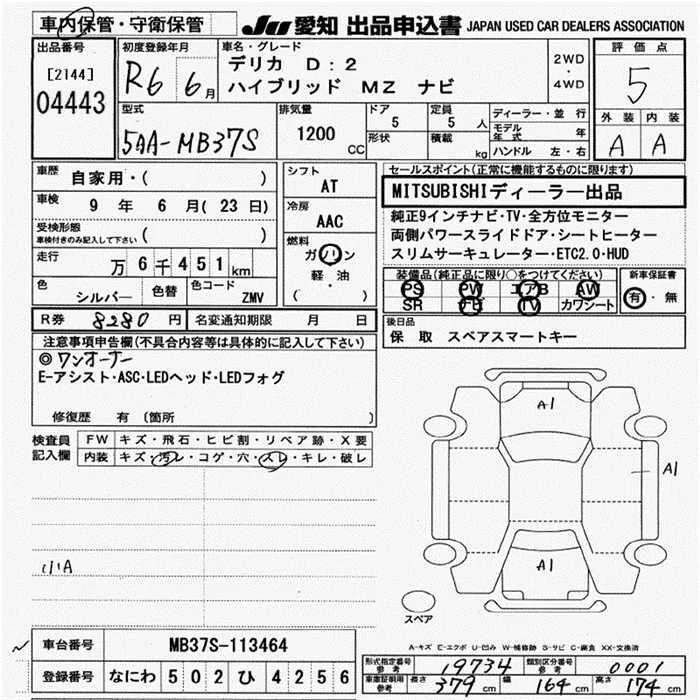 車内保管・守衛保管
JU 愛知 出品申込書 JAPAN USED CAR DEALERS ASSOCIATION
出品番号
[2144]
04443
初度登録年月
R6 6月
車名・グレード
デリカ D:2
ハイブリッド MZ ナビ
2WD
・
4WD
評価点
5
外装 内装
A A
型式
5AA-MB37S
排気量
1200 CC
ドア
5
形状
定員
5 人
積載 kg
ディーラー・並行
モデル年式 年
ハンドル 左・右
車歴
自家用・( )
車検
9 年 6 月 (23 日)
受検形態
車検付きのみ記入して下さい ( )
走行
万 6 千 4 5 1 km
色 シルバー 色替 色コード ZMV
シフト
AT
冷房
AAC
燃料
ガソリン
軽・油
( )
R券 8280 円 名変通知期限 月 日
セールスポイント(正常に機能するものに限ります)
MITSUBISHIディーラー出品
純正9インチナビ・TV・全方位モニター
両側パワースライドドア・シートヒーター
スリムサーキュレーター・ETC2.0・HUD
装備品(純正品に限り○をつけてください)
PS PW エアB AW
SR ナビ TV カワシート
新車保証書
有・無
後日品
保 取 スペアスマートキー
注意事項申告欄(不具合内容等は具体的に記入して下さい)
◎ワンオーナー
E-アシスト・ASC・LEDヘッド・LEDフォグ
修復歴 有 (箇所 )
検査員
記入欄
FW キズ・飛石・ヒビ割・リペア跡・X要
内装 キズ・汚レ・コゲ・穴・スレ・キレ・破レ
小A
A1
A1
A1
スペア
A-キズ E-エクボ U-凹み W-補修跡 S-サビ C-腐食 XX-交換済
車台番号 MB37S-113464
登録番号 なにわ 5 0 2 ひ 4 2 5 6
形式指定番号 参考 19734 類別区分番号 参考 0001
車庫証明用 参考 長さ 379 cm 幅 164 cm 高さ 174 cm